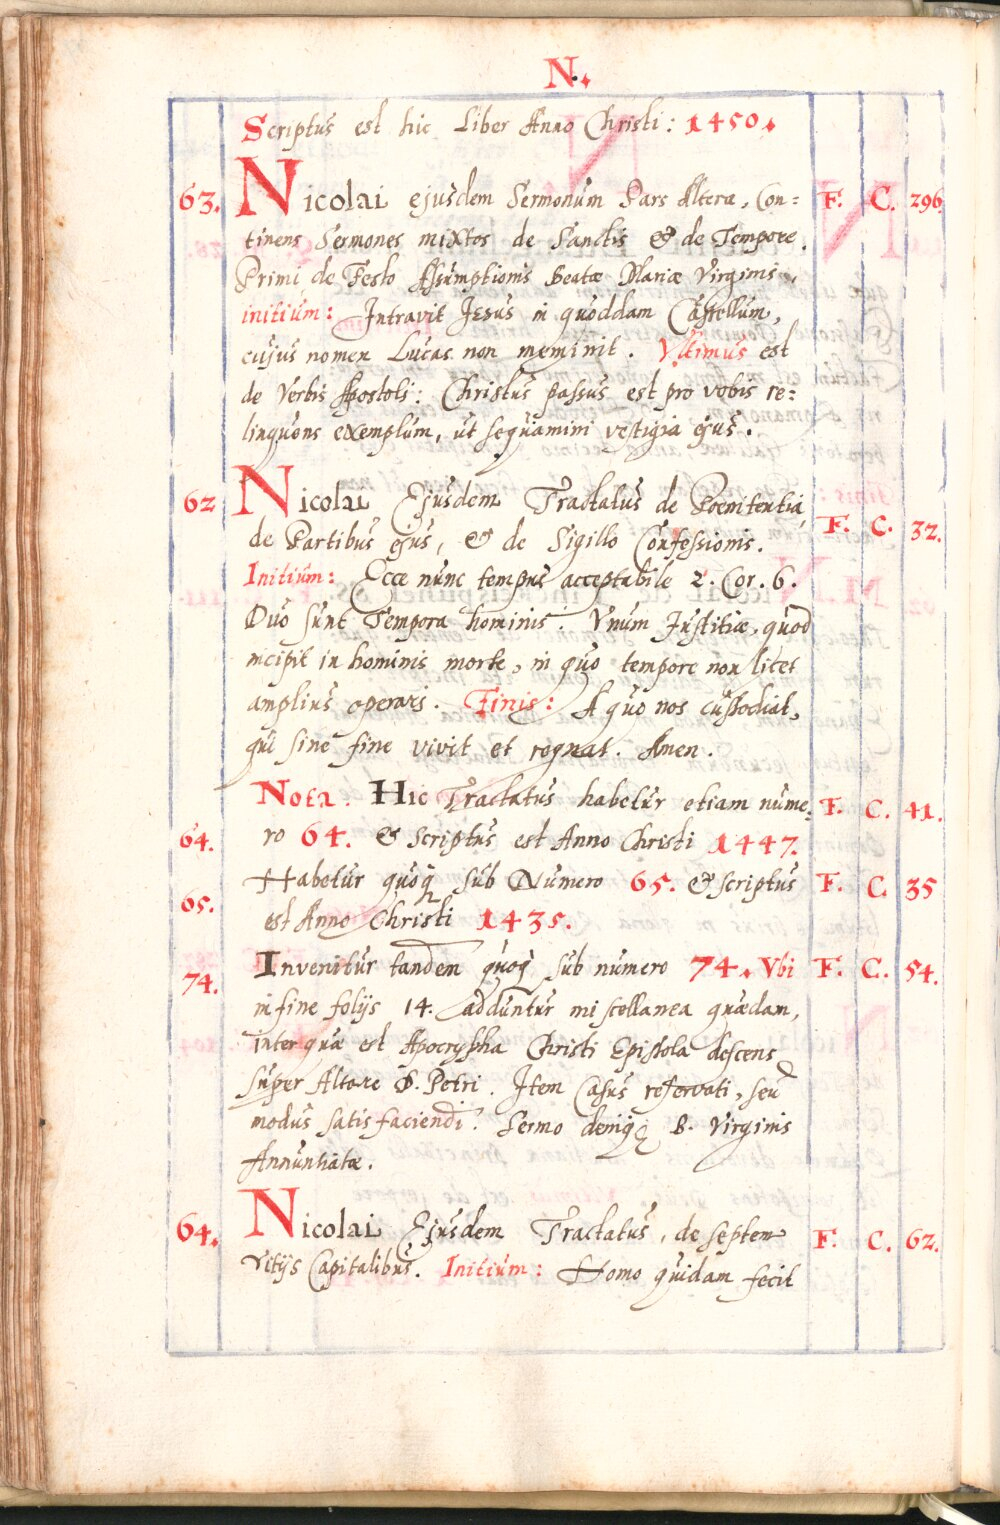 N.
Scriptus est hic Liber Anno Christi: 1450.
63. Nicolai ejusdem Sermonum Pars Altera, Con= F. C. 296.
tinens Sermones mixtos de Sanctis & de Tempore.
Primi de Festo Assumptionis Beatæ Mariæ Virginis,
initium: Intravit Jesus in quoddam Castellum,
cujus nomen Lucas non meminit. Ultimus est
de Verbis Apostoli: Christus passus est pro vobis re=
linquens exemplum, ut sequamini vestigia ejus.
62 Nicolai Ejusdem Tractatus de Poenitentia,
de Partibus ejus, & de Sigillo Confessionis. F. C. 32.
Initium: Ecce nunc tempus acceptabile 2. Cor. 6.
Duo sunt Tempora hominis. Vnum Justitiæ, quod
incipit in hominis morte, in quo tempore non licet
amplius operari. Finis: A quo nos custodiat,
qui sine fine vivit et regnat. Amen.
Nota. Hic Tractatus habetur etiam nume= F. C. 41.
64. ro 64. & scriptus est Anno Christi 1447.
Habetur quoq̧ sub Numero 65. & scriptus F. C. 35
65. est Anno Christi 1435.
74. Invenitur tandem quoq̧ sub numero 74. Vbi F. C. 54.
in fine folijs 14. adduntur miscellanea quædam,
inter quæ est Apocrypha Christi Epistola descens
super Altare D. Petri. Item Casus reservati, seu
modus satisfaciendi. Sermo deniq̧ B. Virginis
Annuntiatæ.
64. Nicolai Ejusdem Tractatus, de septem F. C. 62.
Vitijs Capitalibus. Initium: Homo quidam fecit